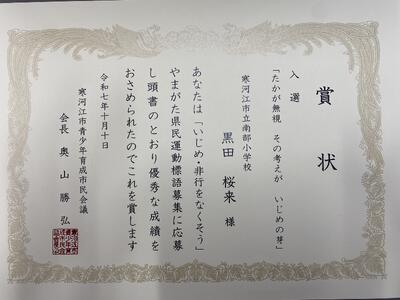 賞状
入選
「たかが無視 その考えが いじめの芽」
寒河江市立南部小学校
黒田 桜来 様
あなたは「いじめ・非行をなくそう」
やまがた県民運動標語募集に応募
し頭書のとおり優秀な成績を
おさめられたのでこれを賞します
令和七年十月十日
寒河江市青少年育成市民会議
会長 奥山勝弘